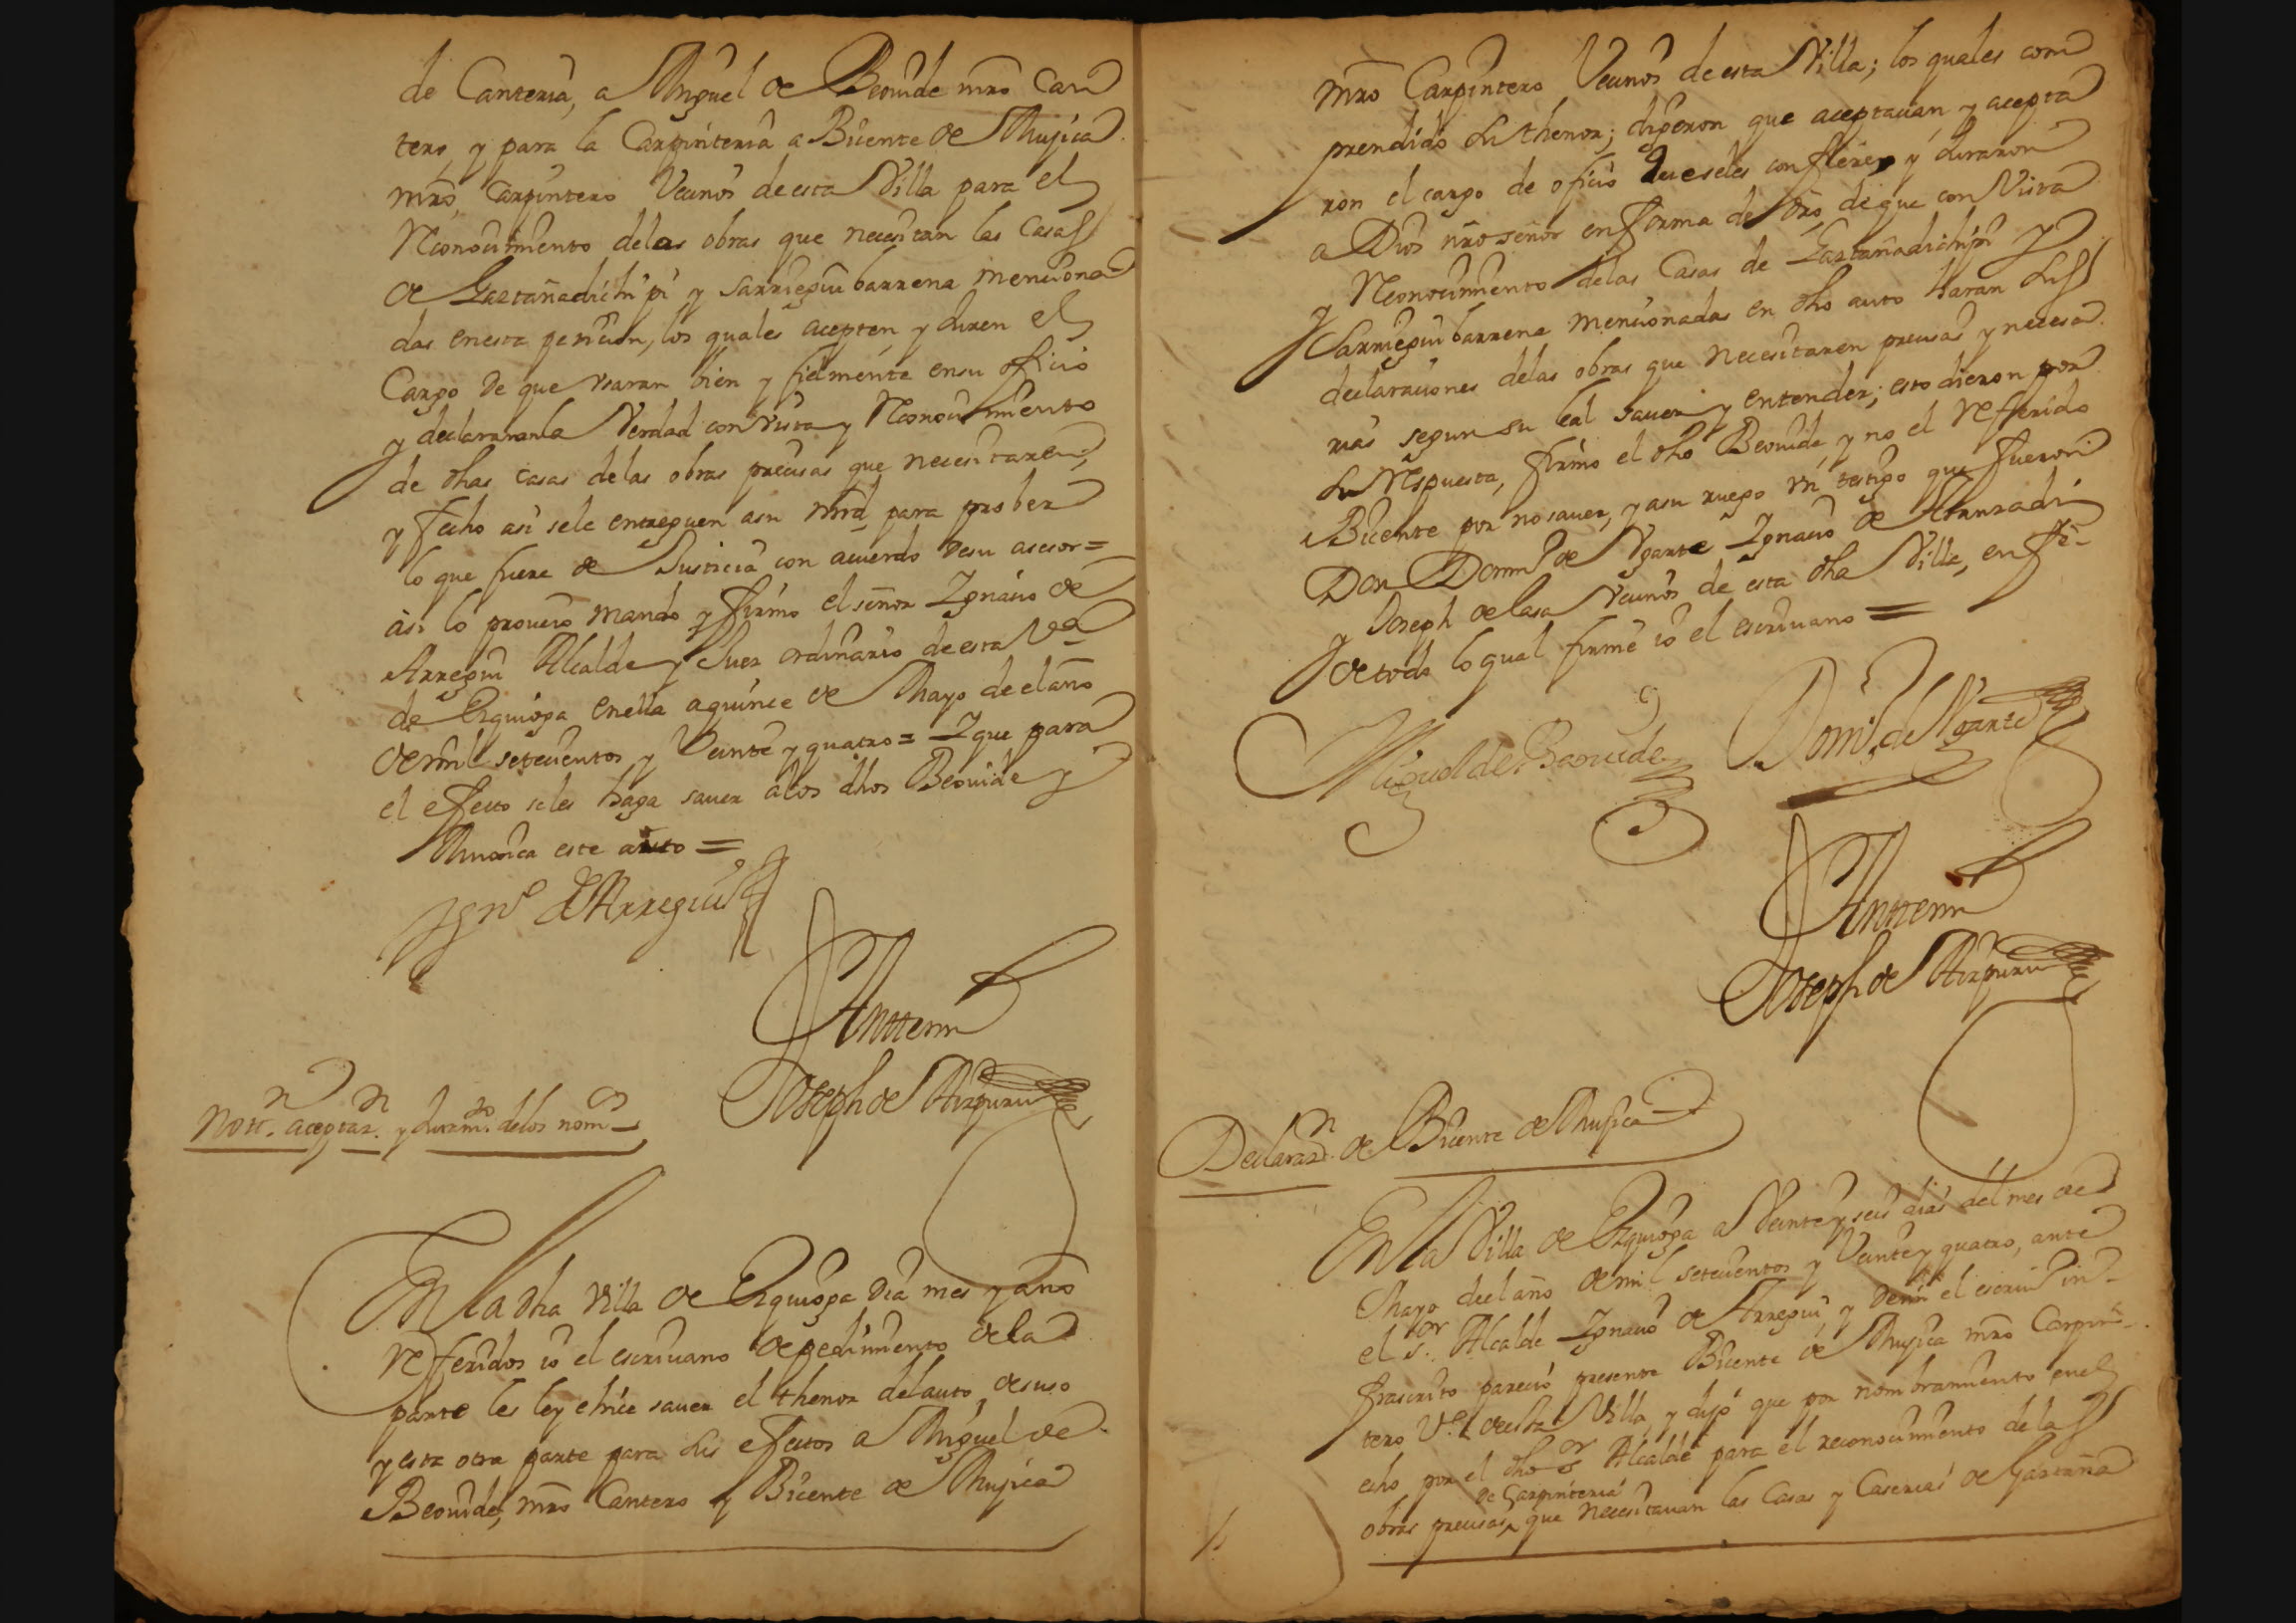 de Canteria, a Miguel de Beouide mro Can
tero, y para la Carpinteria a Bicente de Mujica
mro Carpintero Vecinos de esta Villa para el
Reconocimiento delas obras que necesitan las Casas
de Gaztañadichipi y Sarrieguibarrena menciona
das enesta peticion, los quales acepten y Juren el
Cargo de que vsaran bien y fielmente ensu oficio
y declararanla Verdad con vista y Reconocimiento
de dhas casas delas obras precisas que necesitaren,
y fecho asi sele entreguen asu mrd para prober
lo que fuere de Justicia con acuerdo desu asesor =
asi lo proueio mando y firmo el señor Ignacio de
Arregui Alcalde y Juez ordinario de esta Va
de Ezquioga enella aquince de Mayo de el año
de mil setecientos y Veinte y quatro = Y que para
el efecto seles haga sauer alos dhos Beouide y
Mujica este auto =
Igno de Arregui
Anttemi
Joseph de Aizpuru
Notn. aceptazn. y Juramto. delos nomos
En la dha Villa de Ezquioga dia mes y año
referidos io el escriuano de pedimento de la
parte les ley e hice sauer el thenor del auto desuso
y esta otra parte para sus efectos a Miguel de
Beouide, mro Cantero y Bicente de Mujica
mro Carpintero Vecinos de esta Villa; los quales com
prendido su thenor; dijeron que aceptauan y acepta
ron el cargo de oficio que seles confiere, y Juraron
a Dios nro señor en forma de dro, de que con Vista
y Reconocimiento delas Casas de Gaztañadichipi y
Sarrieguibarrena mencionadas en dho auto haran sus
declaraciones delas obras que necesitaren precisas y necesa
rias segun su leal sauer y entender; esto dieron por
su Respuesta, firmo el dho Beouide, y no el referido
Bicente por no sauer, y asu ruego vn testigo que fueron
Don Domo de Vgarte Ignacio de Aranzadi
y Joseph de lasa Vecinos de esta dha Villa, en fe
de todo lo qual firme io el escriuano =
Miguel de Beouide
Domo de Vgarte
Anttemi
Joseph de Aizpuru
Declarazn. de Bicente de Mujica
En la Villa de Ezquioga a Veinte y seis dias del mes de
Mayo de el año de mil setecientos y Veinte y quatro, ante
el sor. Alcalde Ignacio de Arregui, y demi el escriuo in
frascrito parecio presente Bicente de Mujica mro Carpin
tero Vo. de esta Villa, y dijo que por nombramiento en el
echo por el dho sor Alcalde para el reconocimiento de las
de Carpinteria
obras precisas que necesitauan las Casas y Caserias de Gaztaña